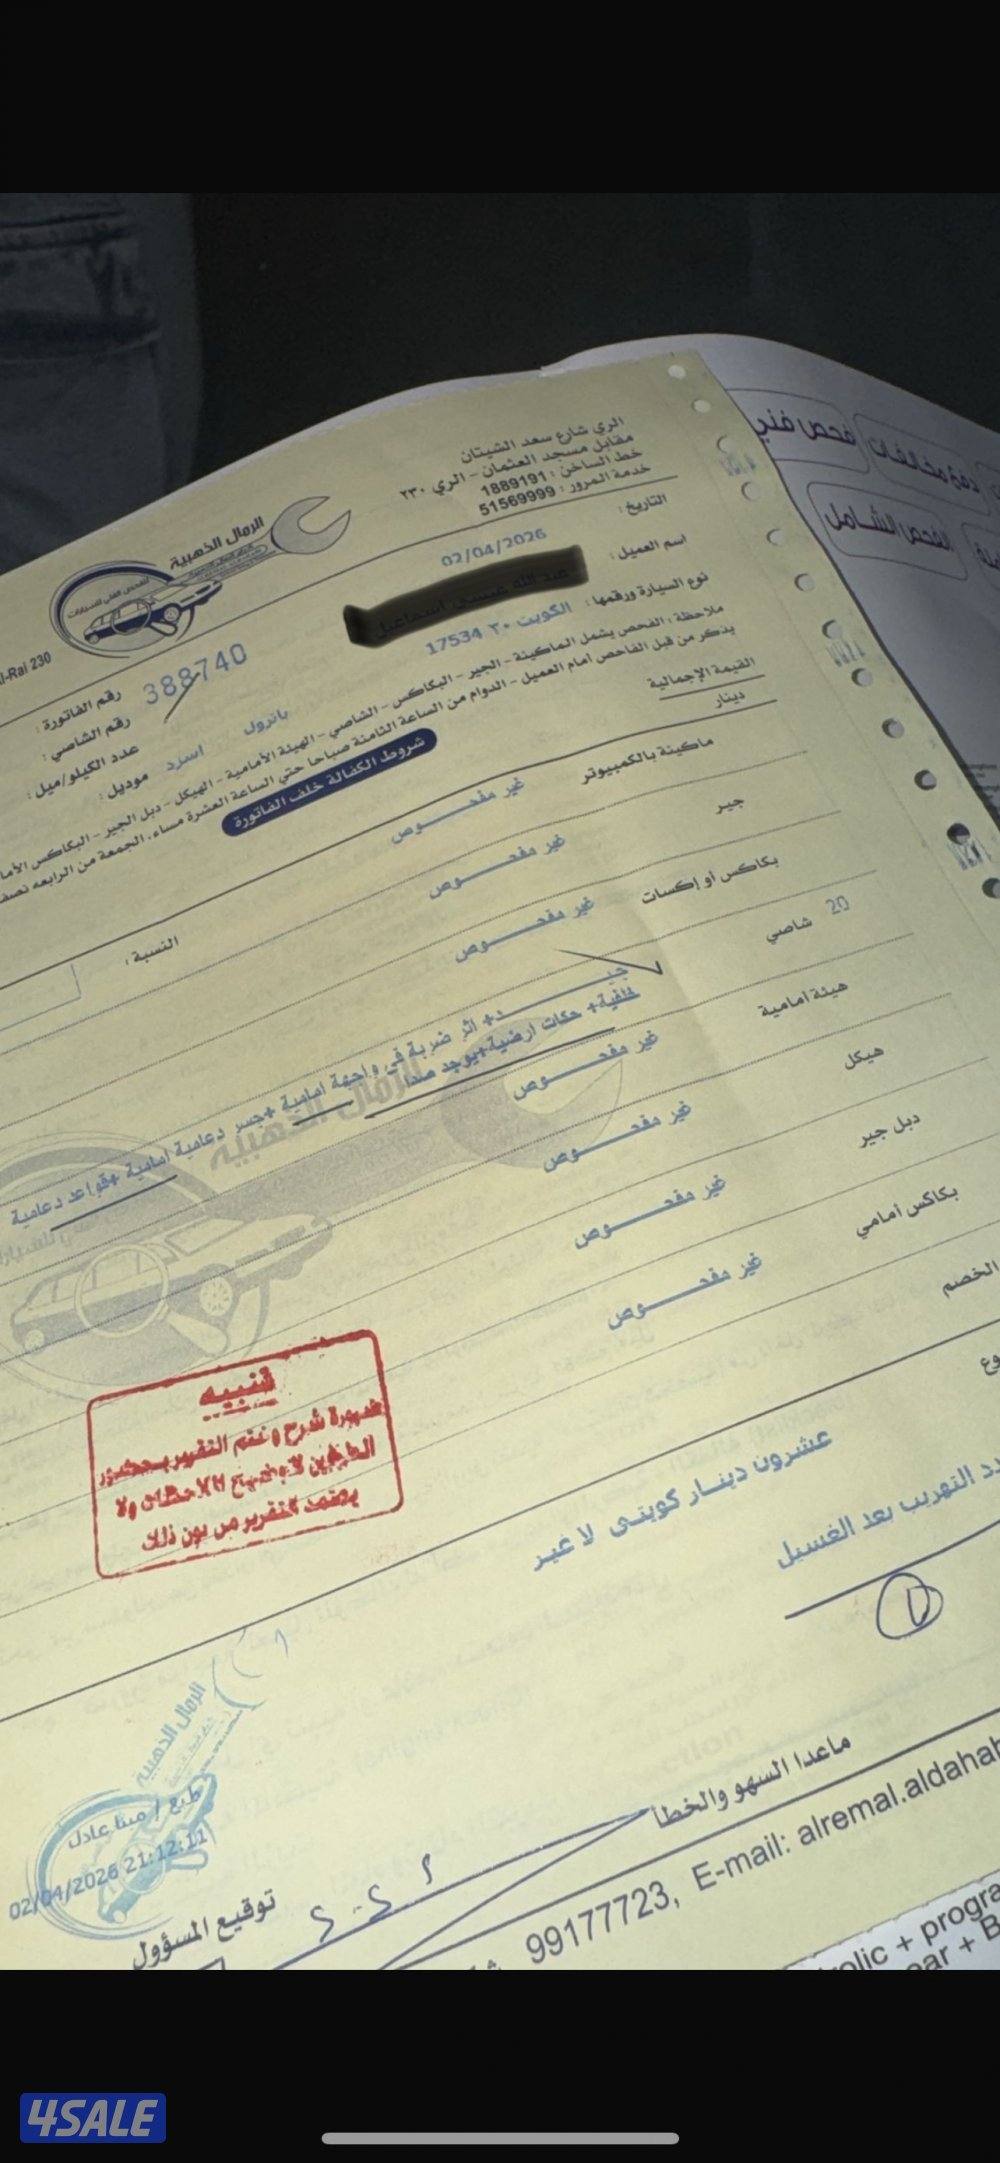 فحص فني
دفع مخالفات
الفحص الشامل
الري شارع سعد الشيتان
مقابل مسجد العثمان - الري ٢٣٠
خط الساخن : 1889191
خدمة المرور : 51569999
الرمال الذهبية
للفحص الفني للسيارات
l-Rai 230
التاريخ :
02/04/2026
اسم العميل :
نوع السيارة ورقمها :
الكويت ٣٠ 17534
رقم الفاتورة :
388740
رقم الشاصي :
عدد الكيلو/ميل :
باترول
موديل :
اسود
ملاحظة : الفحص يشمل الماكينة - الجير - البكاكس - الشاصي - الهيئة الأمامية - الهيكل - دبل الجير - البكاكس الأما
يذكر من قبل الفاحص أمام العميل - الدوام من الساعة الثامنة صباحا حتي الساعة العشرة مساء، الجمعة من الرابعه نصف
شروط الكفالة خلف الفاتورة
القيمة الإجمالية
دينار
النسبة :
ماكينة بالكمبيوتر
غير مفحـــوص
جير
غير مفحـــوص
بكاكس أو إكسات
غير مفحـــوص
20
شاصي
جيـــــد+ اثر ضربة في واجهة امامية +جسر دعامية امامية +قواعد دعامية
خلفية+ حكات ارضية+يوجد صدا
هيئة امامية
غير مفحـــوص
هيكل
غير مفحـــوص
دبل جير
غير مفحـــوص
بكاكس أمامي
غير مفحـــوص
الخصم
وع
عشرون دينـار كويتـى لا غيـر
دد التهريب بعد الغسيل
تنبيه
ضرورة شرح وختم التقرير بحضور
الطرفين لتوضيح الملاحظات ولا
يعتمد التقرير من دون ذلك
الرمال الذهبية
طبع / مينا عادل
02/04/2026 21:12:11
توقيع المسؤول
ماعدا السهو والخطأ
99177723, E-mail: alremal.aldahab
rolic + progra
ear + B
4SALE